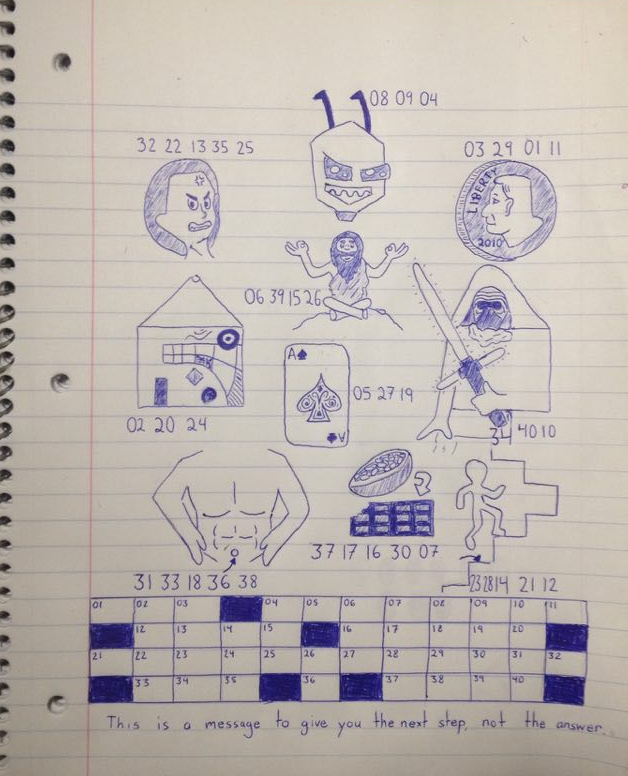 08 09 04
32 22 13 35 25
03 29 01 11
LIBERTY
2010
06 39 15 26
A
05 27 19
A
02 20 24
34 40 10
37 17 16 30 07
31 33 18 36 38
23 28 14 21 12
01 02 03 04 05 06 07 08 09 10 11
12 13 14 15 16 17 18 19 20
21 22 23 24 25 26 27 28 29 30 31 32
33 34 35 36 37 38 39 40
This is a message to give you the next step, not the answer.